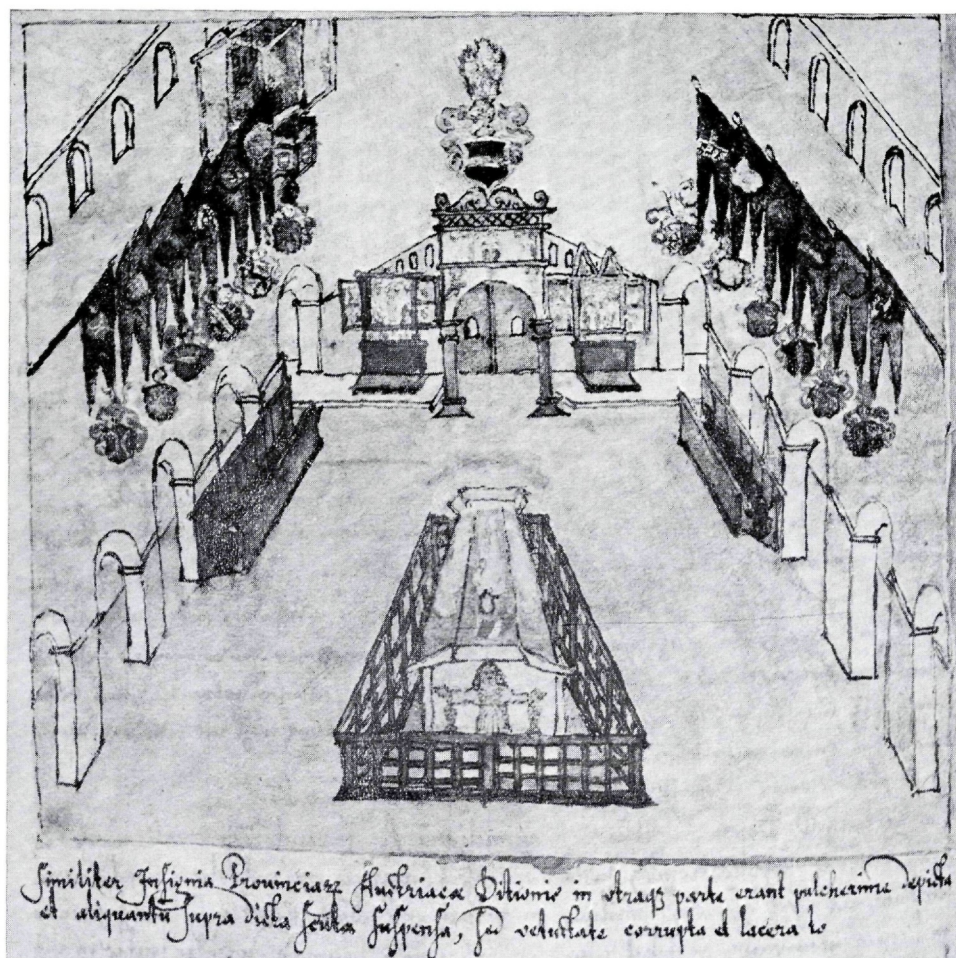 Similiter Insignia Prouinciarz Austriacæ Ditionis in vtraqz parte erant pulcherime depicta
et aliquantū supra dicta scuta suspensa, sed vetustate corrupta et lacera